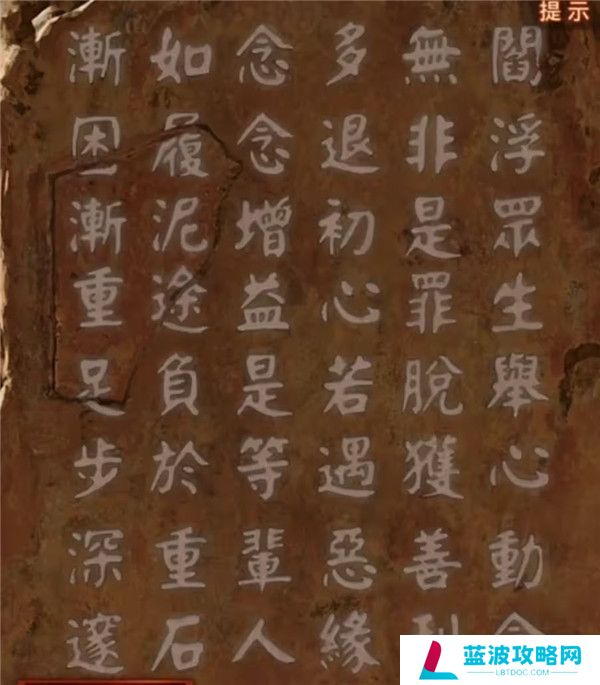 提示
閻浮眾生舉心動
無非是罪脫獲善
多退初心若遇惡緣
念念增益是等輩人
如履泥途負於重石
漸困漸重足步深邃
蓝波攻略网
LBTDOC.COM